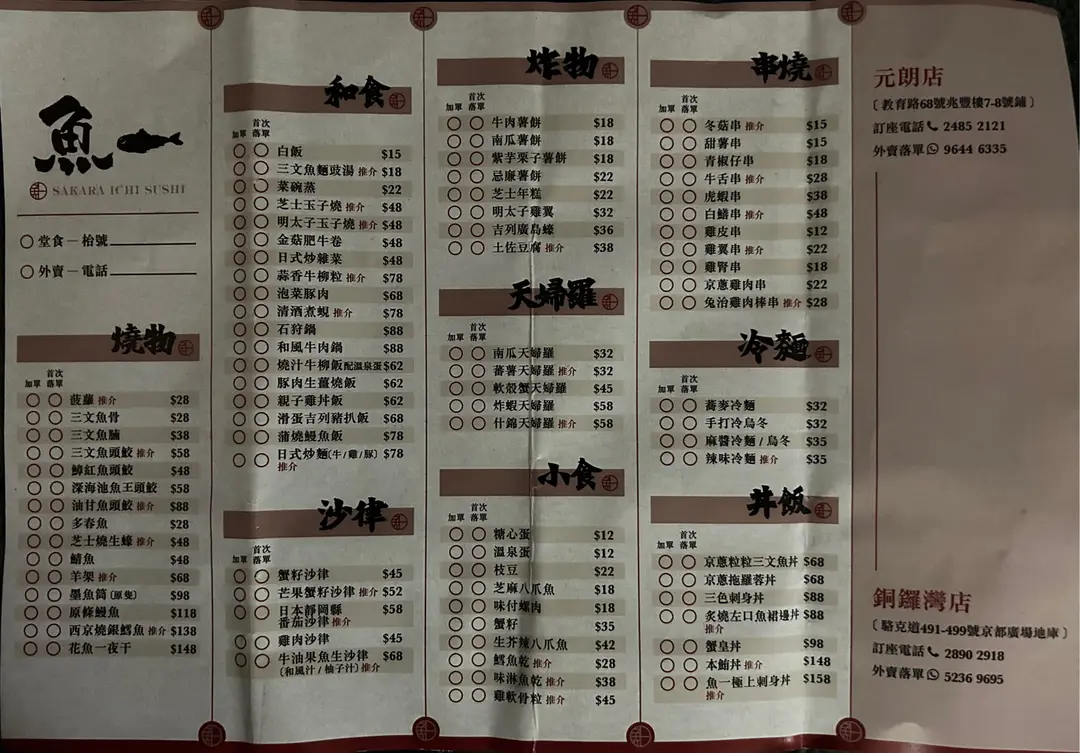 魚一
SAKARA ICHI SUSHI
堂食 — 枱號
外賣 — 電話
燒物
加單 首次落單
菠蘿 推介 $28
三文魚骨 $28
三文魚腩 $38
三文魚頭鮫 推介 $58
鱆紅魚頭鮫 $48
深海池魚王頭鮫 $58
油甘魚頭鮫 推介 $88
多春魚 $28
芝士燒生蠔 推介 $48
鯖魚 $48
羊架 推介 $68
墨魚筒 (原隻) $98
原條鰻魚 $118
西京燒銀鱈魚 推介 $138
花魚一夜干 $148
和食
加單 首次落單
白飯 $15
三文魚麵豉湯 推介 $18
菜碗蒸 $22
芝士玉子燒 推介 $48
明太子玉子燒 推介 $48
金菇肥牛卷 $48
日式炒雜菜 $48
蒜香牛柳粒 推介 $78
泡菜豚肉 $68
清酒煮蜆 推介 $78
石狩鍋 $88
和風牛肉鍋 $88
燒汁牛柳飯配溫泉蛋 $62
豚肉生薑燒飯 $62
親子雞丼飯 $62
滑蛋吉列豬扒飯 $68
蒲燒鰻魚飯 $78
日式炒麵(牛/雞/豚) $78
推介
沙律
加單 首次落單
蟹籽沙律 $45
芒果蟹籽沙律 推介 $52
日本靜岡縣 $58
番茄沙律 推介
雞肉沙律 $45
牛油果魚生沙律 $68
(和風汁 / 柚子汁) 推介
炸物
加單 首次落單
牛肉薯餅 $18
南瓜薯餅 $18
紫芋栗子薯餅 $18
忌廉薯餅 $22
芝士年糕 $22
明太子雞翼 $32
吉列廣島蠔 $36
土佐豆腐 推介 $38
天婦羅
加單 首次落單
南瓜天婦羅 $32
蕃薯天婦羅 推介 $32
軟殼蟹天婦羅 $45
炸蝦天婦羅 $58
什錦天婦羅 推介 $58
小食
加單 首次落單
糖心蛋 $12
溫泉蛋 $12
枝豆 $22
芝麻八爪魚 $18
味付螺肉 $18
蟹籽 $35
生芥辣八爪魚 $42
鱈魚乾 推介 $28
味淋魚乾 推介 $38
雞軟骨粒 推介 $45
串燒
加單 首次落單
冬菇串 推介 $15
甜薯串 $15
青椒仔串 $18
牛舌串 推介 $28
虎蝦串 $38
白鱔串 推介 $48
雞皮串 $12
雞翼串 推介 $22
雞腎串 $18
京蔥雞肉串 $22
免治雞肉棒串 推介 $28
冷麵
加單 首次落單
蕎麥冷麵 $32
手打冷烏冬 $32
麻醬冷麵 / 烏冬 $35
辣味冷麵 推介 $35
丼飯
加單 首次落單
京蔥粒粒三文魚丼 $68
京蔥拖羅蓉丼 $68
三色刺身丼 $88
炙燒左口魚裙邊丼 $88
推介
蟹皇丼 $98
本鮪丼 推介 $148
魚一極上刺身丼 $158
推介
元朗店
〔 教育路68號兆豐樓7-8號鋪 〕
訂座電話 2485 2121
外賣落單 9644 6335
銅鑼灣店
〔 駱克道491-499號京都廣場地庫 〕
訂座電話 2890 2918
外賣落單 5236 9695